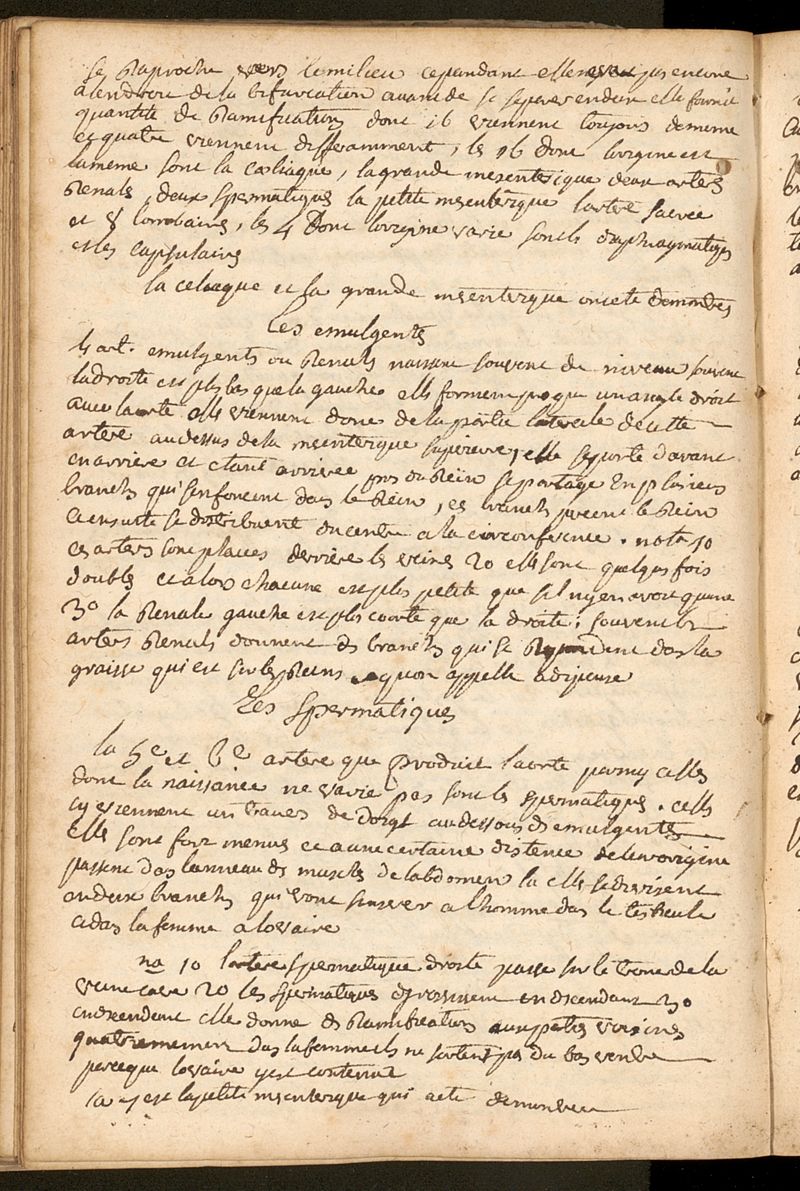 se Raproche vers lemilieu cependant elle pas encore
alendroit de la bifurcation avant de se separer endeux elle fournit
quantité de Ramifications dont 16 viennent toujours de meme
et quatre viennent differamment, les 16 dont lorigine est
lameme sont la cœliaque, la grande mesenterique deux arteres
Renals, deux spermatiques la petite mesenterique lartere sacree
et 8 lombaires, les 4 Dont lorigine varie sont les diaphragmatiques
et les capsulaires
la celiaque et la grande mesenterique ont eté demontrés
Les emulgents
les art. emulgents ou Renals naissent souvent de niveau souvent
ladroite est plus bas que la gauche elles forment presque un angle droit
avec laorte elles viennent donc de la partie laterale de cette
artere audessus de la mesenterique superieure, elle se porte d'avant
en arriere et etant arrivée pres du Rein se partage En plusieurs
branches qui s'enfoncent dans le Rein, ces branches percent le Rein
et ensuite se distribuent du centre a la circonference. nota 10
ces arteres sont placees derriere les veines 20 elles sont quelques fois
doubles et alors chacune est plus petite que sil ny en avoit quune
3o la Renale gauche est plus courte que la droite; souvent les
arteres Renals donnent des branches qui se Repandent dans la
graisse qui est sur les Reins quon appelle adipeuse
Les Spermatiques
la 5e et 6e artere que produit laorte parmy celles
dont la naissance ne varie pas sont les spermatiques. celles
cy viennent un travers de doigt au dessous des emulgents
elles sont fort menues et a une certaine distence de leur origine
passent dans lanneau des muscles de labdomen la elles se divisent
en deux branches qui vont sinserer a lhomme dans le testicule
et dans la femme a lovaire
na 10 lartere spermatique droite passe sur le tronc de la
veine cave 20 les spermatiques grossissent en descendant 30
en descendant elle donne des Ramifications aux parties voisines
quatriemement dans la femme ils ne sortent pas du bas ventre
parceque lovaire y est contenue
la 7 est la petite mesenterique qui a eté demontree